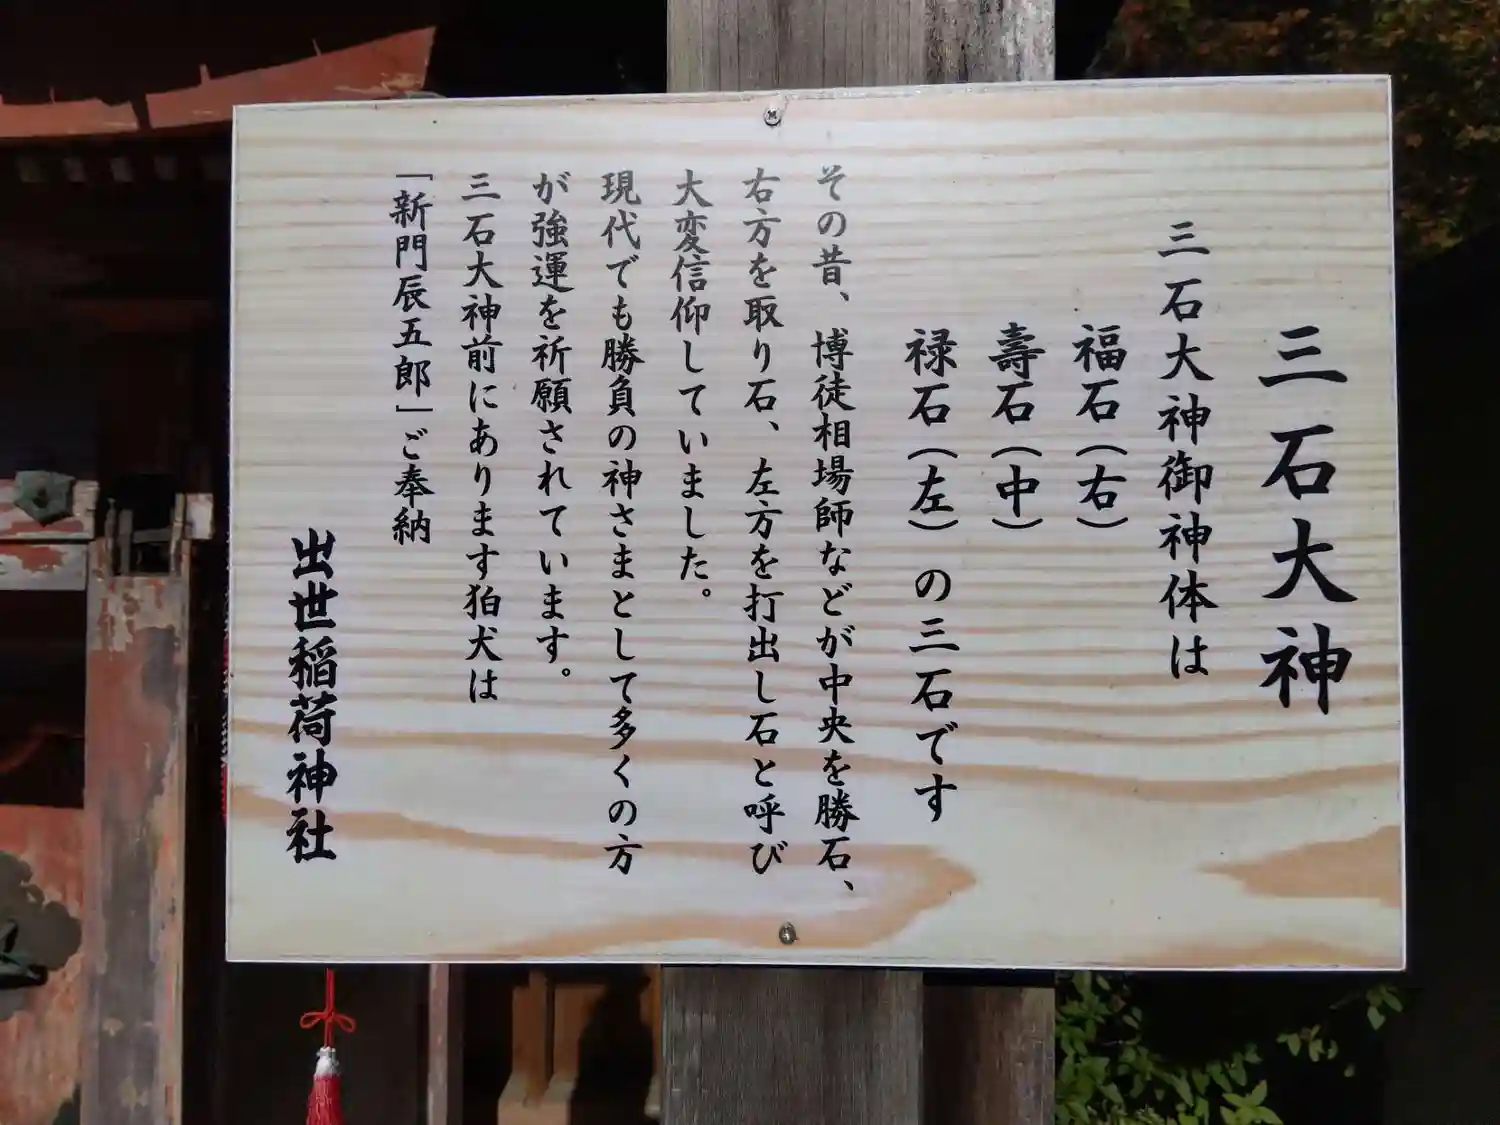 三石大神
三石大神御神体は
福石(右)
壽石(中)
禄石(左)の三石です
その昔、博徒相場師などが中央を勝石、
右方を取り石、左方を打出し石と呼び
大変信仰していました。
現代でも勝負の神さまとして多くの方
が強運を祈願されています。
三石大神前にあります狛犬は
「新門辰五郎」ご奉納
出世稲荷神社